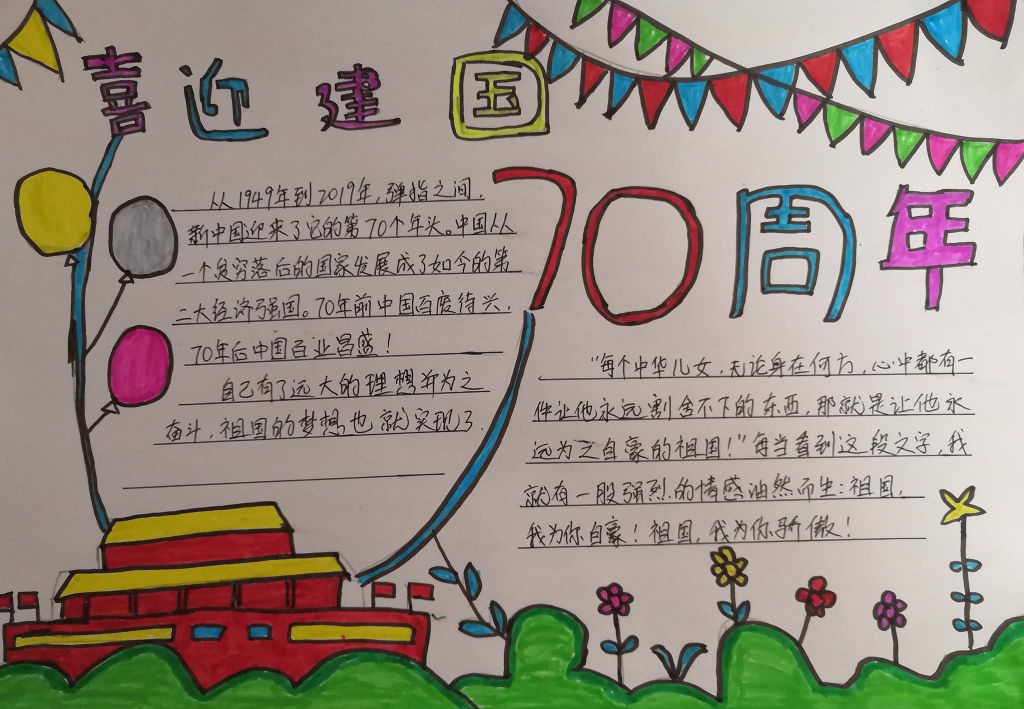 喜迎建国
70周年
从1949年到2019年,弹指之间,
新中国迎来了它的第70个年头。中国从
一个贫穷落后的国家发展成了如今的第
二大经济强国。70年前中国百废待兴,
70年后中国百业昌盛!
自己有了远大的理想并为之
奋斗,祖国的梦想也就实现了.
“每个中华儿女,无论身在何方,心中都有一
件让他永远割舍不下的东西,那就是让他永
远为之自豪的祖国!”每当看到这段文字,我
就有一股强烈的情感油然而生:祖国,
我为你自豪!祖国,我为你骄傲!